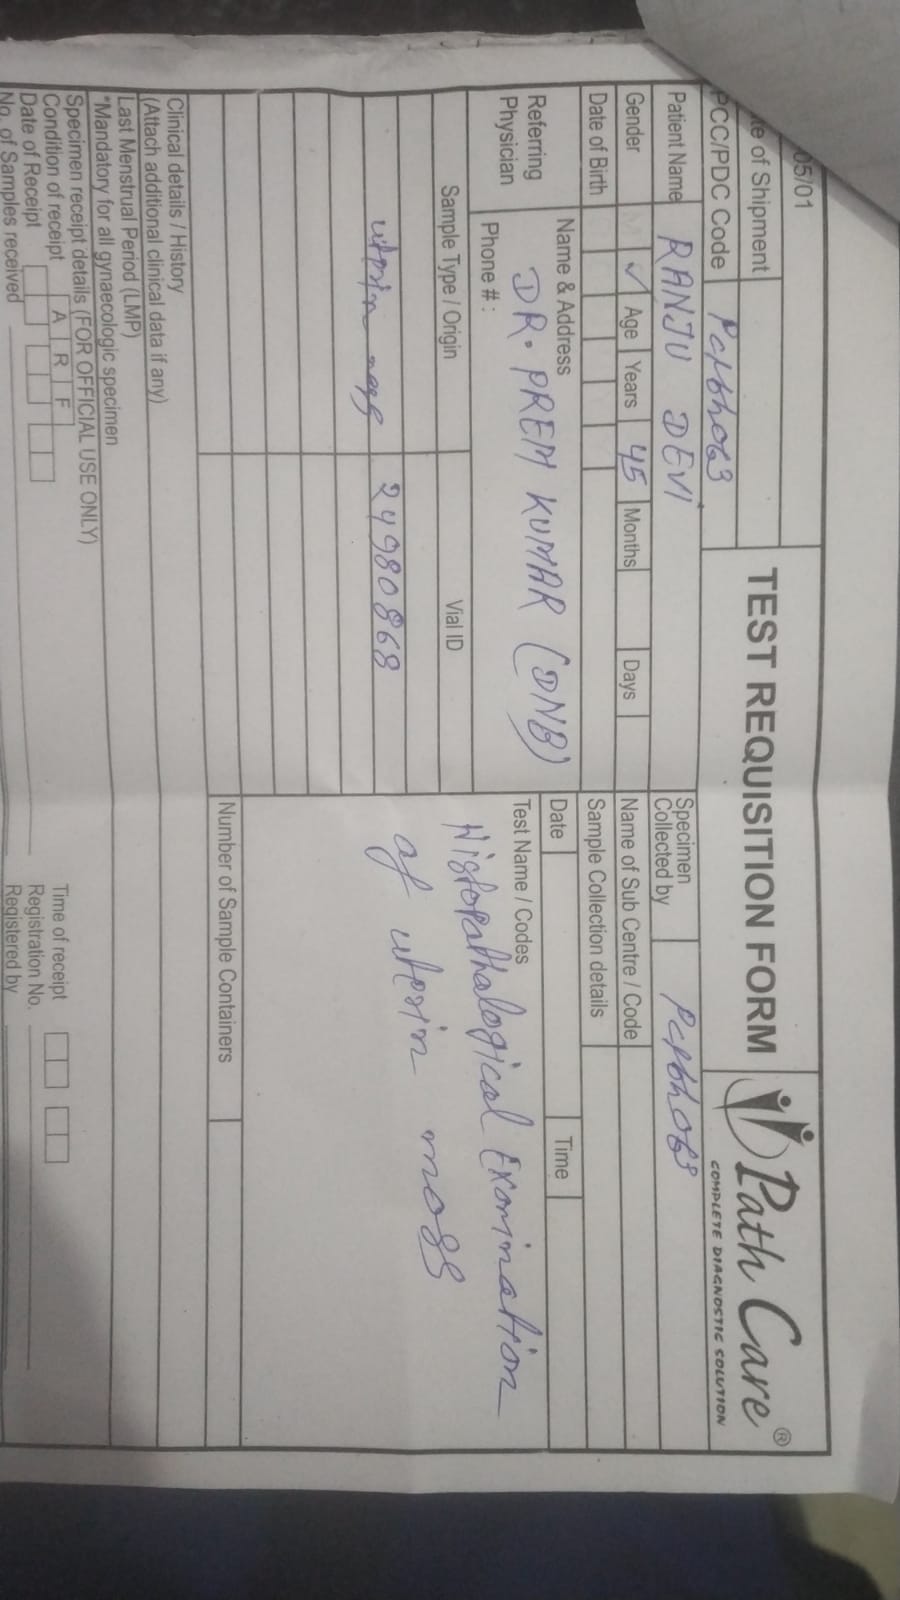 05/01
te of Shipment
TEST REQUISITION FORM
Path Care®
COMPLETE DIAGNOSTIC SOLUTION
PCC/PDC Code
Patient Name RANJU DEVI
Specimen
Collected by
Gender ✓ Age Years 45 Months Days
Name of Sub Centre / Code
Date of Birth
Sample Collection details
Date Time
Referring
Physician
Name & Address
DR. PREM KUMAR (DNB)
Phone # :
Test Name / Codes
Histopathalogical Examination
of uterin mass
Sample Type / Origin Vial ID
uterin mass 24980868
Number of Sample Containers
Clinical details / History
(Attach additional clinical data if any)
Last Menstrual Period (LMP)
*Mandatory for all gynaecologic specimen
Specimen receipt details (FOR OFFICIAL USE ONLY)
Condition of receipt A R F
Time of receipt
Date of Receipt
Registration No.
No. of Samples received
Registered by